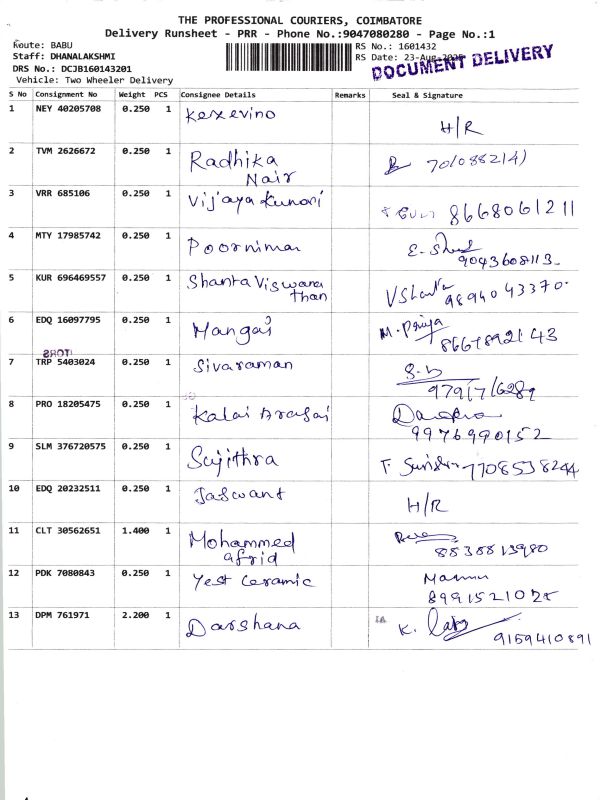 THE PROFESSIONAL COURIERS, COIMBATORE
Delivery Runsheet - PRR - Phone No.:9047080280 - Page No.:1
Route: BABU
RS No.: 1601432
Staff: DHANALAKSHMI
RS Date: 23-Aug-
DOCUMENT DELIVERY
DRS No.: DCJB160143201
Vehicle: Two Wheeler Delivery
S No Consignment No Weight PCS Consignee Details Remarks Seal & Signature
1 NEY 40205708 0.250 1 Kexevino H/R
2 TVM 2626672 0.250 1 Radhika
Nair
3 VRR 685106 0.250 1 Vijaya Kumari 8668061211
4 MTY 17985742 0.250 1 Poornima
9043608113
5 KUR 696469557 0.250 1 Shanta Viswana
than
9894043370
6 EDQ 16097795 0.250 1 Mangai M. Priya
8667892143
7 TRP 5403024 0.250 1 Sivaraman S.b
8 PRO 18205475 0.250 1 Kalai Arasai
9976990152
9 SLM 376720575 0.250 1 Sujithra 7708538244
10 EDQ 20232511 0.250 1 Jaswant H/R
11 CLT 30562651 1.400 1 Mohammed
afrid
8838813980
12 PDK 7080843 0.250 1 Yest Ceramic
13 DPM 761971 2.200 1 Darshana K.
9159410891